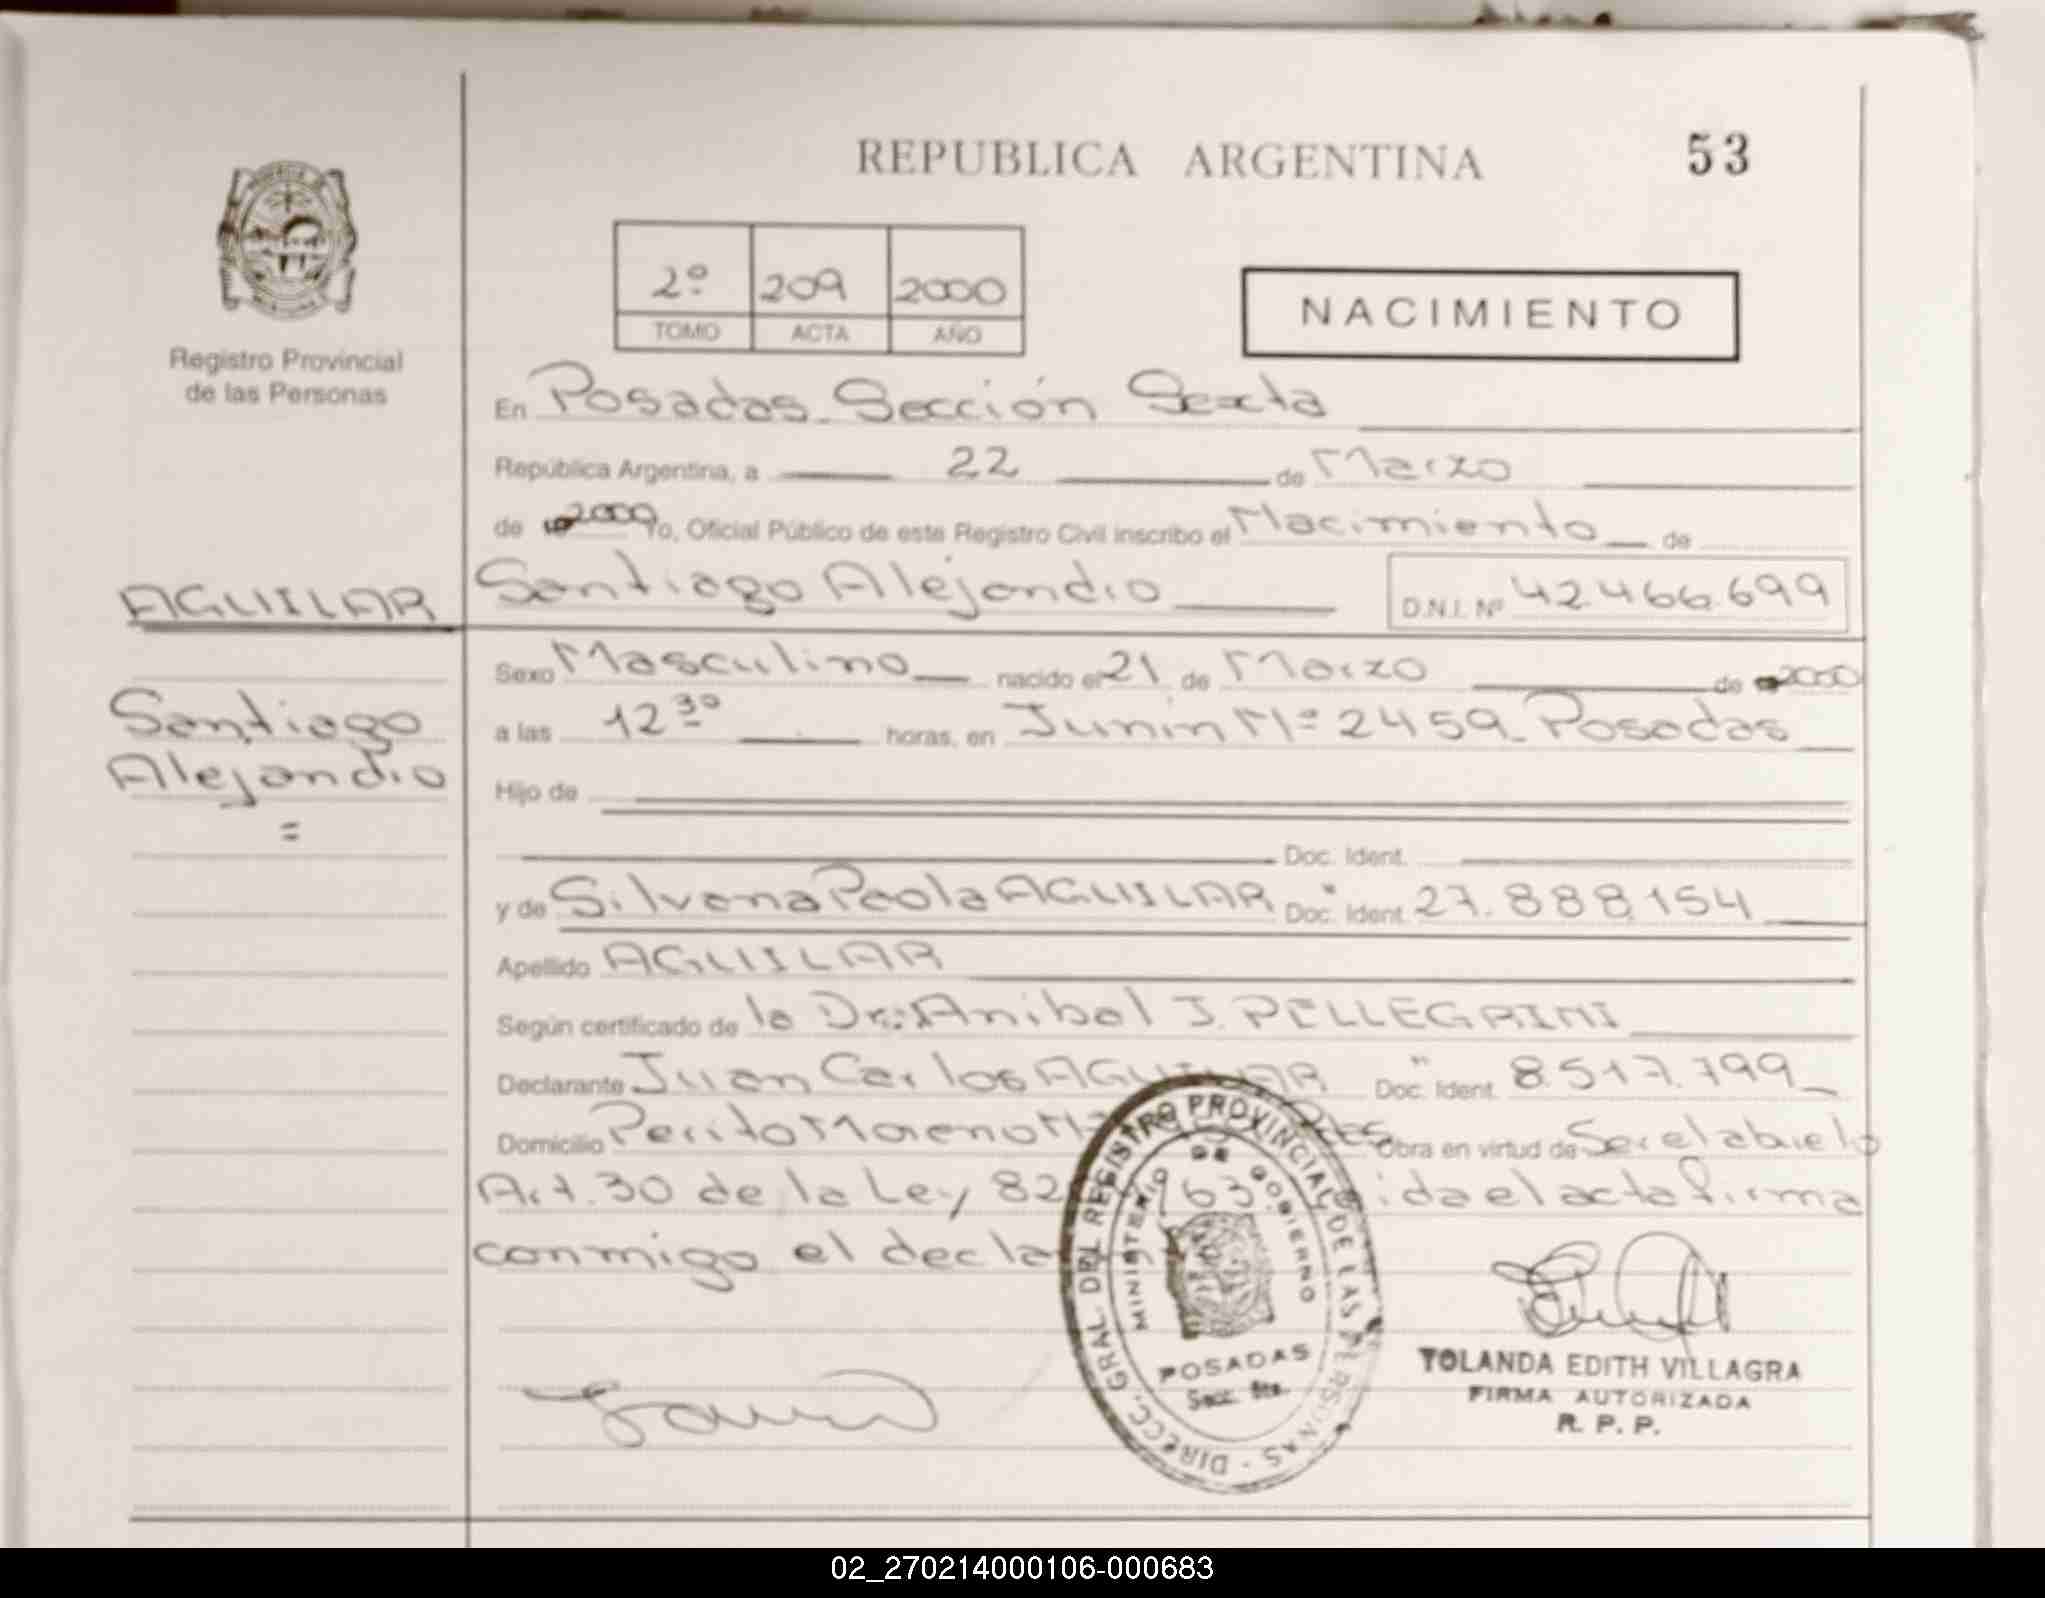 REPUBLICA ARGENTINA 53
2º 209 2000
TOMO ACTA AÑO
NACIMIENTO
Registro Provincial
de las Personas
En Posadas. Sección Sexta
República Argentina, a 22 de Marzo
de 2000 Yo, Oficial Público de este Registro Civil inscribo el Nacimiento de
AGUILAR Santiago Alejandro D.N.I. Nº 42.466.699
Sexo Masculino nacido el 21 de Marzo de 2000
Santiago
a las 12 30 horas, en Junín Nº 2459. Posadas
Alejandro
=
Hijo de
Doc. Ident.
y de Silvana Paola AGUILAR Doc. Ident. 27.888.154
Apellido AGUILAR
Según certificado de la Dr: Anibal J. PELLEGRINI
Declarante Juan Carlos AGUILAR Doc. Ident. 8.517.799
Domicilio Perito Moreno Obra en virtud de Ser el abuelo
Art. 30 de la Ley 82 el acta firma
conmigo el
DIRECC. GRAL. DEL REGISTRO PROVINCIAL DE LAS PERSONAS
MINISTERIO DE GOBIERNO
POSADAS
Secc. 6ta.
YOLANDA EDITH VILLAGRA
FIRMA AUTORIZADA
R. P. P.
02_270214000106-000683